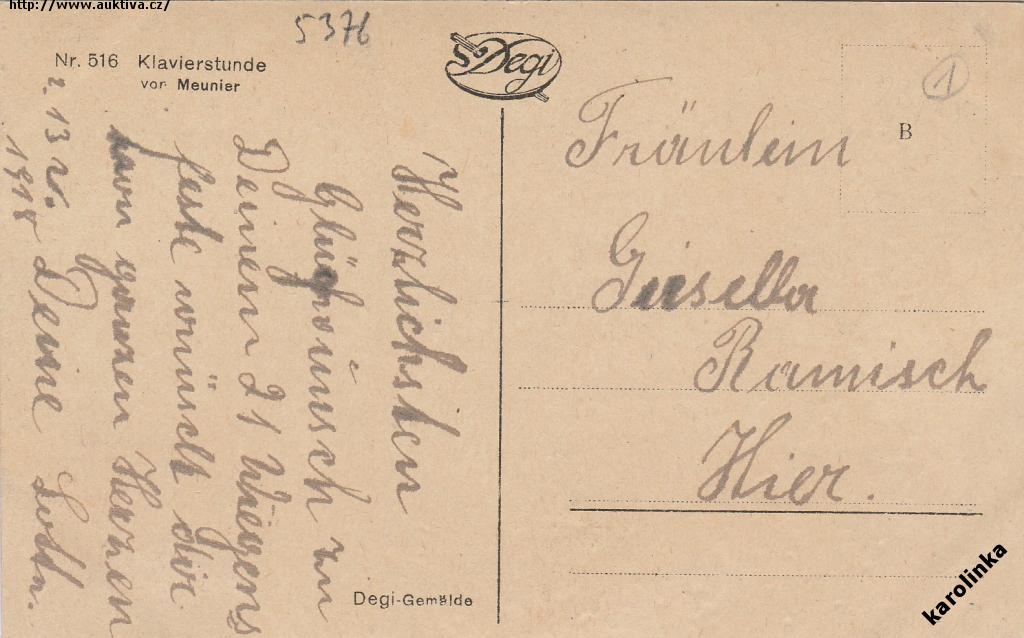 http://www.auktiva.cz/
5376
Nr. 516 Klavierstunde
von Meunier
Degi
1
B
Herzlichsten
Glückwunsch zu
Deinem 21 Wiegens
feste wünscht dir
ganzen Herzen
Deine
13
1918
Fräulein
Gisella
Ramisch
Hier.
Degi-Gemälde
karolinka